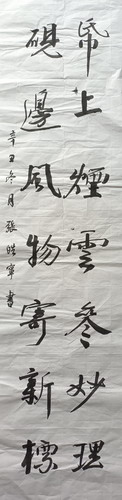 帋上煙雲參妙理
硯邊風物寄新標
辛丑冬月張晧寧書